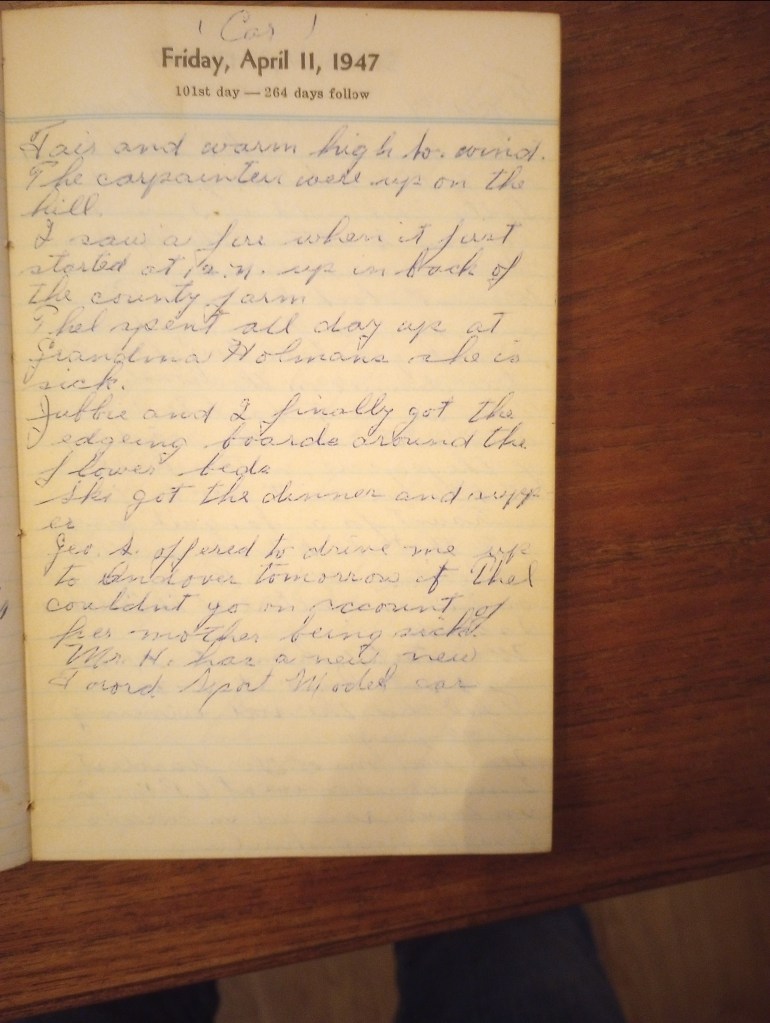 (Car)
Friday, April 11, 1947
101st day — 264 days follow
Fair and warm high so. wind.
The carpainters were up on the
hill.
I saw a fire when it first
started at 12.N. up in back of
the county farm
Thel spent all day up at
Grandma Holmans she is
sick.
Jubbie and I finally got the
edgeing boards around the
flower beds
She got the dinner and supp-
er
Geo. S. offered to drive me up
to Andover tomorrow if Thel
couldn't go on account of
her mother being sick.
Mr H. has a new new
Foord Sport Model car